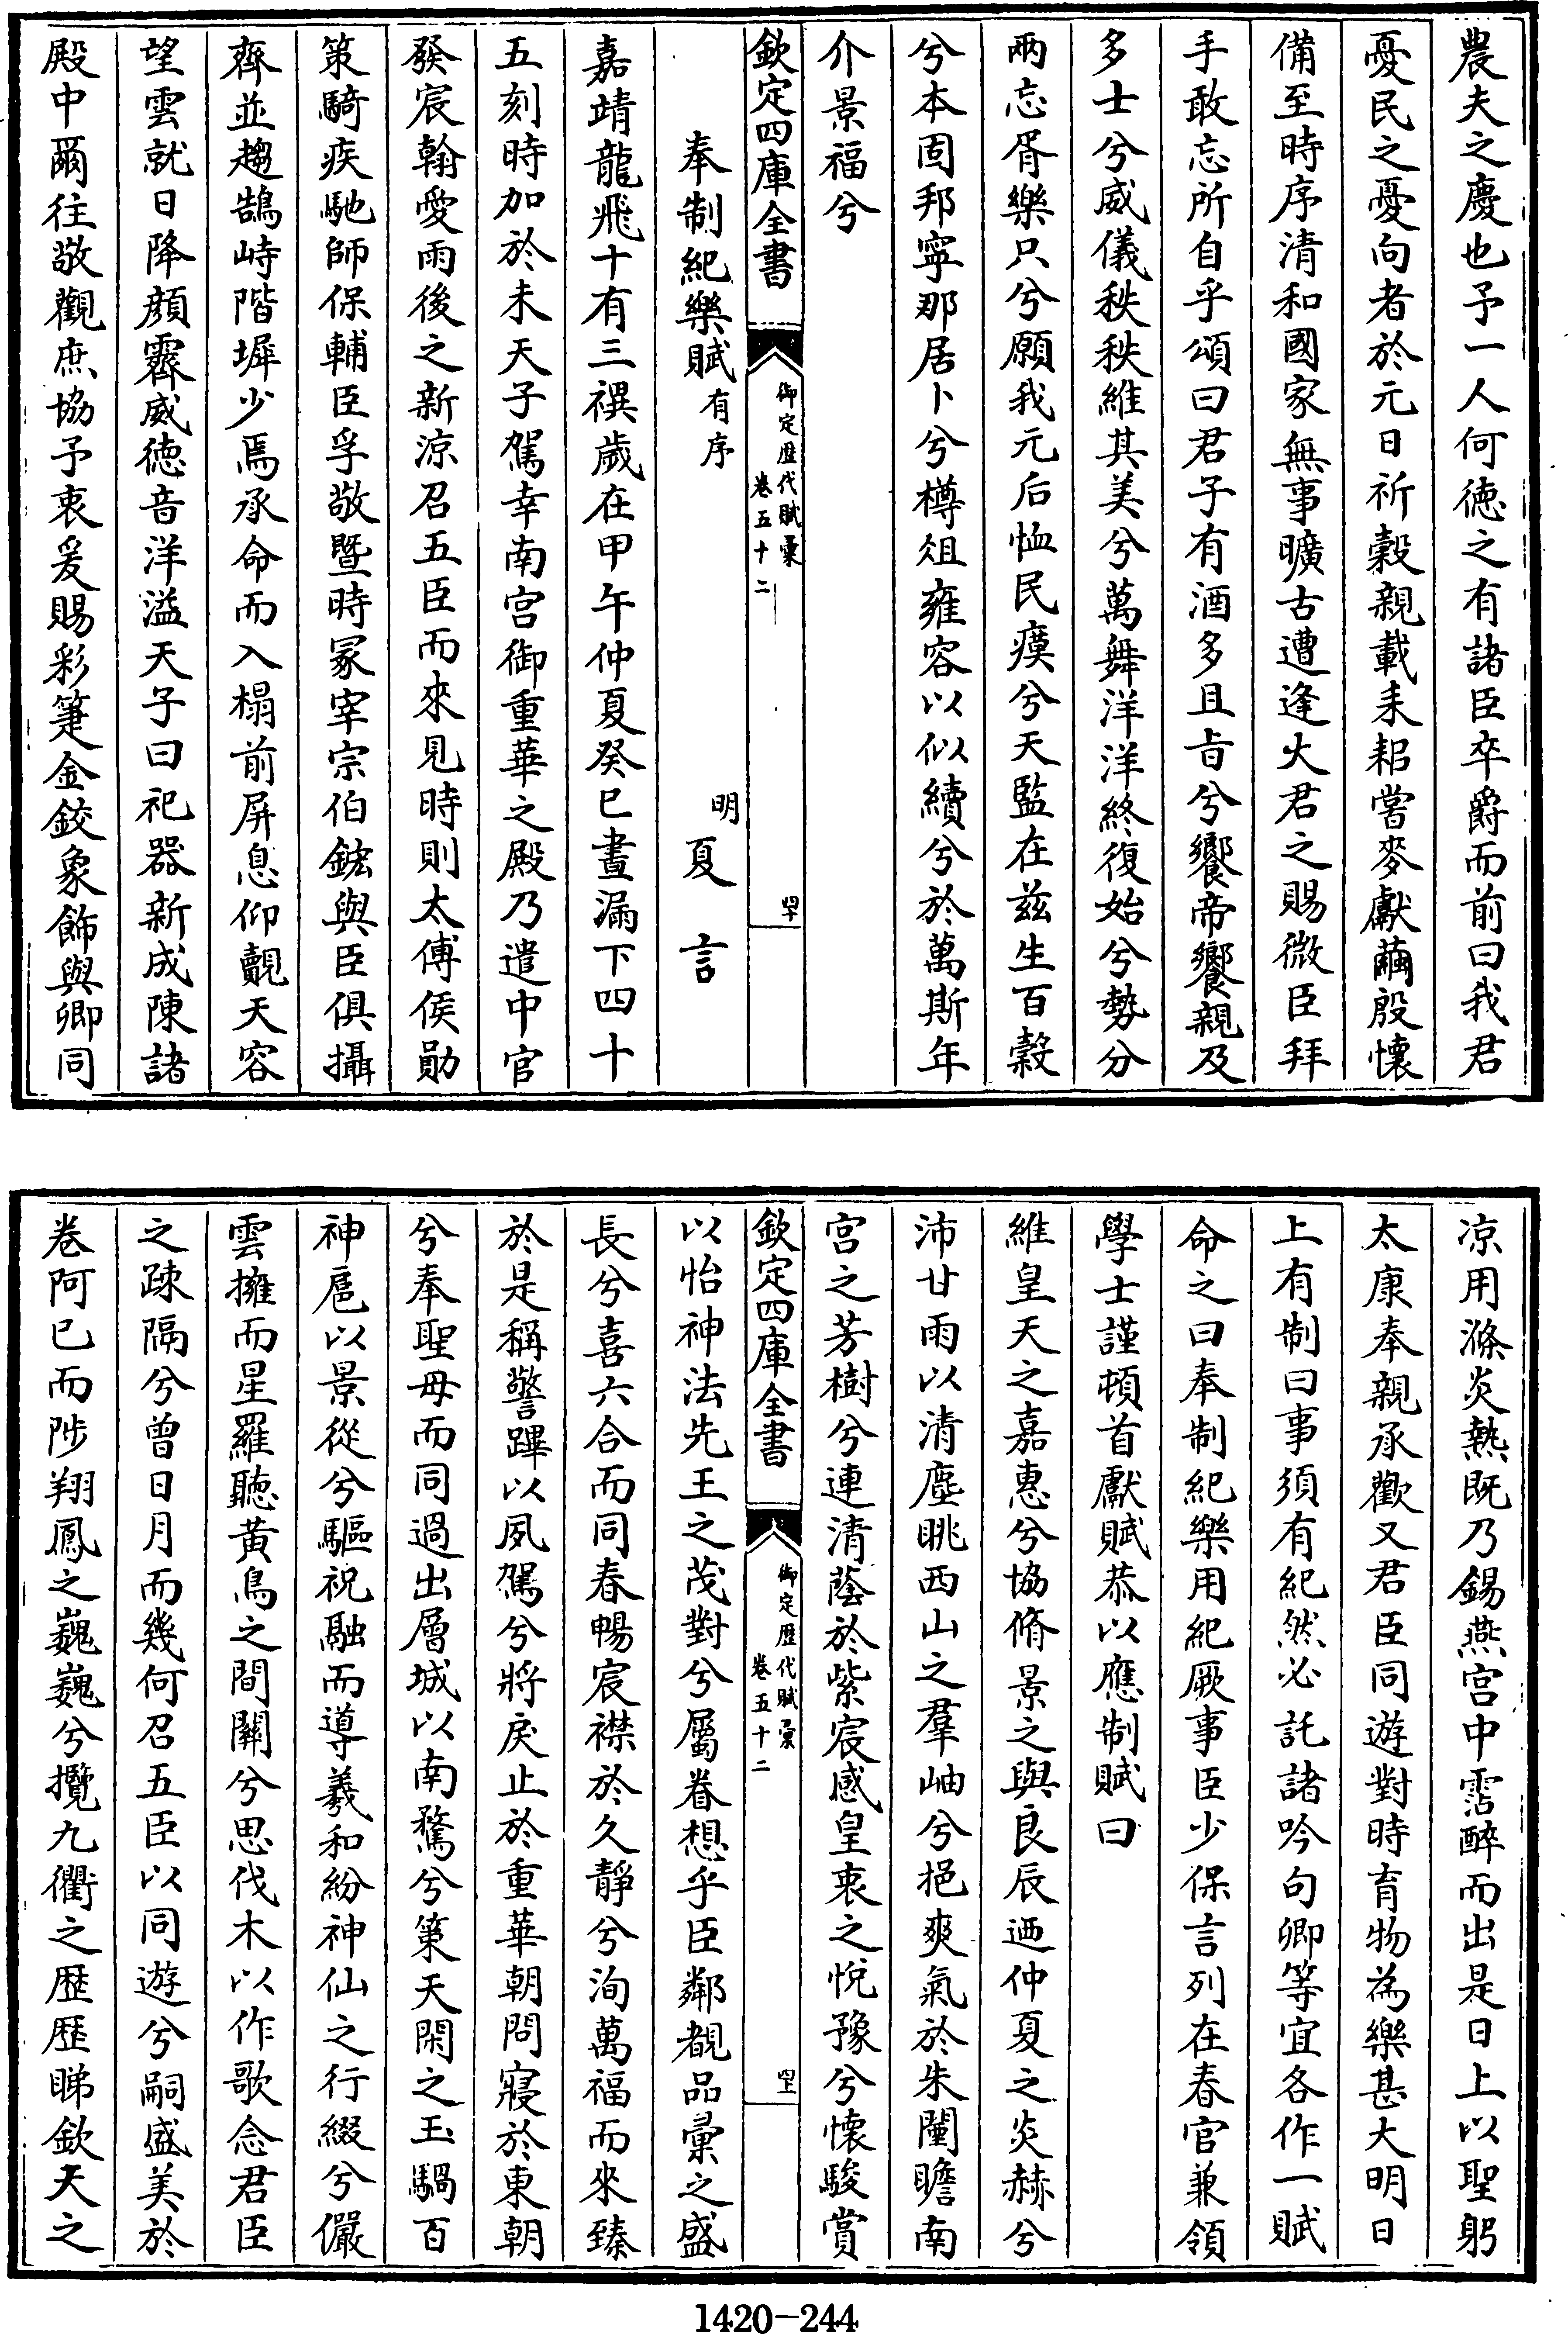 農夫之慶也予一人何德之有諸臣卒爵而前曰我君
憂民之憂向者於元日祈穀親載耒耜嘗麥獻繭殷懷
備至時序清和國家無事曠古遭逢大君之賜微臣拜
手敢忘所自乎頌曰君子有酒多且㫖兮饗帝饗親及
多士兮威儀秩秩維其美兮萬舞洋洋終復始兮勢分
兩忘胥樂只兮願我元后恤民瘼兮天監在兹生百穀
兮本固邦寧那居卜兮樽俎雍容以似續兮於萬斯年
介景福兮
欽定四庫全書
御定歴代賦彙
卷五十二
奉制紀樂賦有序
明夏言
嘉靖龍飛十有三禩歲在甲午仲夏癸巳晝漏下四十
五刻時加於未天子駕幸南宫御重華之殿乃遣中官
發宸翰愛雨後之新涼召五臣而來見時則太傅侯勛
策騎疾馳師保輔臣孚敬暨時冢宰宗伯鋐與臣俱攝
齊並趨鵠峙階墀少焉承命而入榻前屏息仰覿天容
望雲就日降顔霽威德音洋溢天子曰祀器新成陳諸
殿中爾往敬觀庶協予衷爰賜彩箑金鉸象飾與卿同
凉用滌炎熱既乃錫燕宫中霑醉而出是日上以聖躬
太康奉親承歡又君臣同遊對時育物為樂甚大明日
上有制曰事須有紀然必託諸吟句卿等宜各作一賦
命之曰奉制紀樂用紀厥事臣少保言列在春官兼領
學士謹頓首獻賦恭以應制賦曰
維皇天之嘉惠兮協脩景之與良辰迺仲夏之炎赫兮
沛甘雨以清塵眺西山之羣岫兮挹爽氣於朱闉瞻南
宫之芳樹兮連清蔭於紫宸感皇衷之悅豫兮懷駿賞
欽定四庫全書
御定歴代賦彙
卷五十二
以怡神法先王之茂對兮屬眷想乎臣鄰覩品彙之盛
長兮喜六合而同春暢宸襟於久靜兮洵萬福而來臻
於是稱警蹕以夙駕兮將戾止於重華朝問寢於東朝
兮奉聖母而同過出層城以南騖兮策天閑之玉騧百
神扈以景從兮驅祝融而導羲和紛神仙之行綴兮儼
雲擁而星羅聽黄鳥之間關兮思伐木以作歌念君臣
之疎隔兮曾日月而幾何召五臣以同遊兮嗣盛美於
卷阿巳而陟翔鳳之巍巍兮攬九衢之歴歴睇欽天之
1420-244